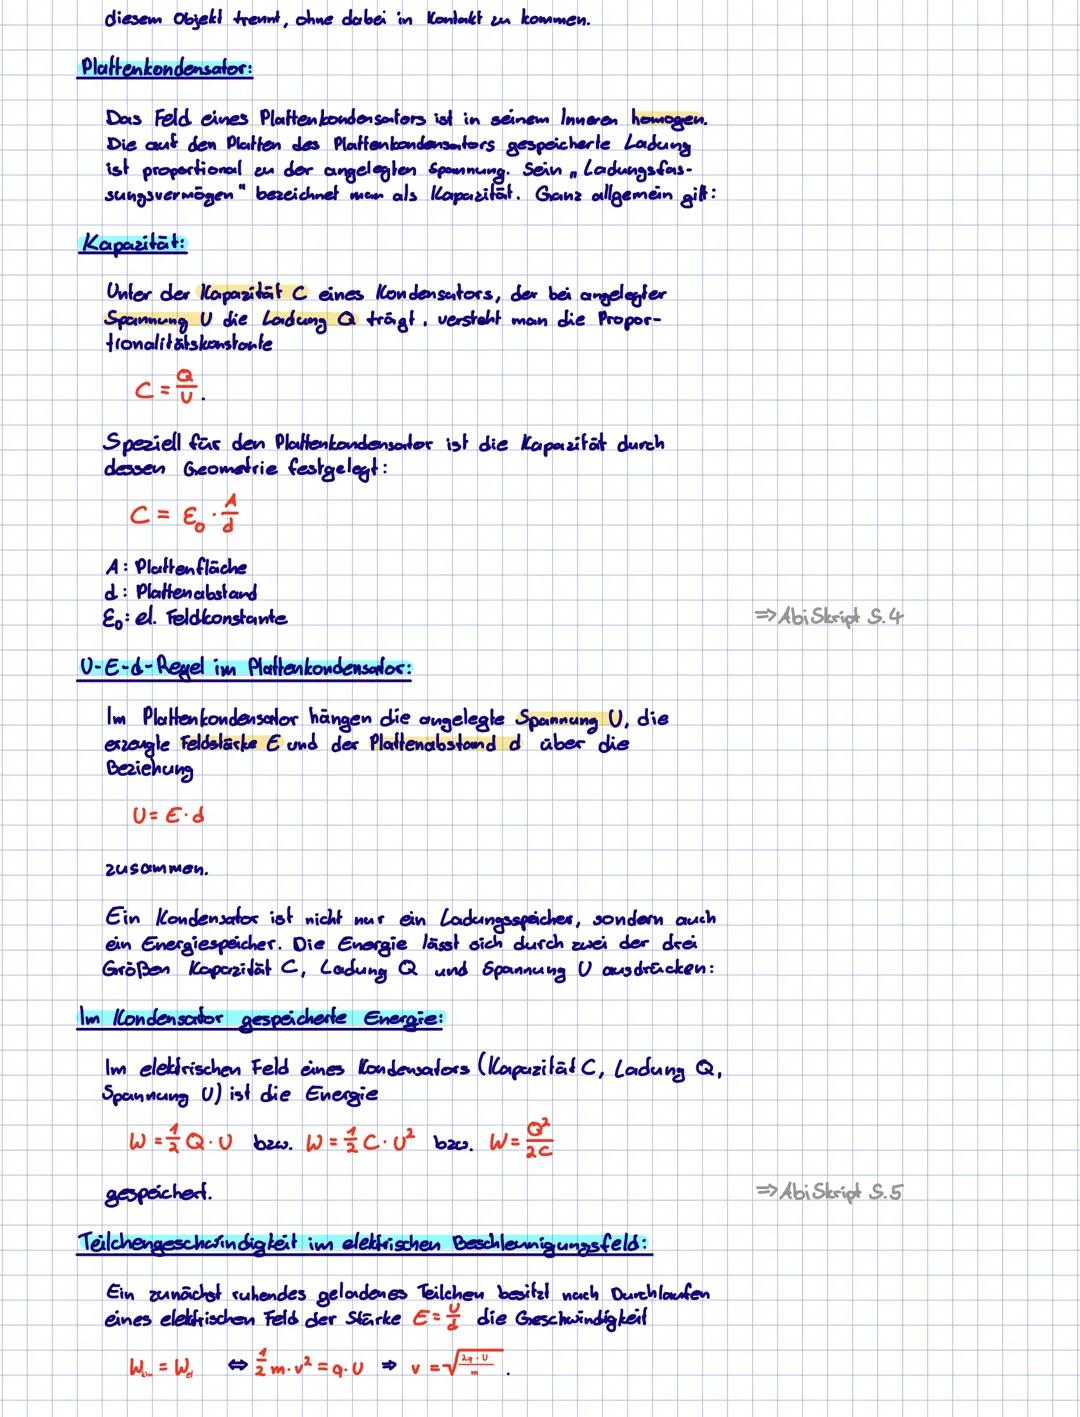 diesem Objekt trennt, ohne dabei in Kontakt zu kommen.
Plattenkondensator:
Das Feld eines Plattenkondensators ist in seinem Inneren homogen.
Die auf den Platten des Plattenkondensators gespeicherte Ladung
ist proportional zu der angelegten Spannung. Sein „Ladungsfas-
sungsvermögen" bezeichnet man als Kapazität. Ganz allgemein gilt:
Kapazität:
Unter der Kapazität C eines Kondensators, der bei angelegter
Spannung U die Ladung Q trägt, versteht man die Propor-
tionalitätskonstante
C = Q/U.
Speziell für den Plattenkondensator ist die Kapazität durch
dessen Geometrie festgelegt:
C = ε₀ · A/d
A: Plattenfläche
d: Plattenabstand
ε₀: el. Feldkonstante
⇒ AbiSkript S.4
U-E-d-Regel im Plattenkondensator:
Im Plattenkondensator hängen die angelegte Spannung U, die
erzeugte Feldstärke E und der Plattenabstand d über die
Beziehung
U = E · d
zusammen.
Ein Kondensator ist nicht nur ein Ladungsspeicher, sondern auch
ein Energiespeicher. Die Energie lässt sich durch zwei der drei
Größen Kapazität C, Ladung Q und Spannung U ausdrücken:
Im Kondensator gespeicherte Energie:
Im elektrischen Feld eines Kondensators (Kapazität C, Ladung Q,
Spannung U) ist die Energie
W = 1/2 Q · U bzw. W = 1/2 C · U² bzw. W = Q²/2C
gespeichert.
⇒ AbiSkript S.5
Teilchengeschwindigkeit im elektrischen Beschleunigungsfeld:
Ein zunächst ruhendes geladenes Teilchen besitzt nach Durchlaufen
eines elektrischen Feld der Stärke E = U/d die Geschwindigkeit
W_kin = W_el ⇔ 1/2 m · v² = q · U ⇒ v = √(2q · U/m).